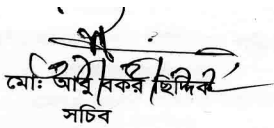 মোঃ আবু বকর ছিদ্দিক
সচিব